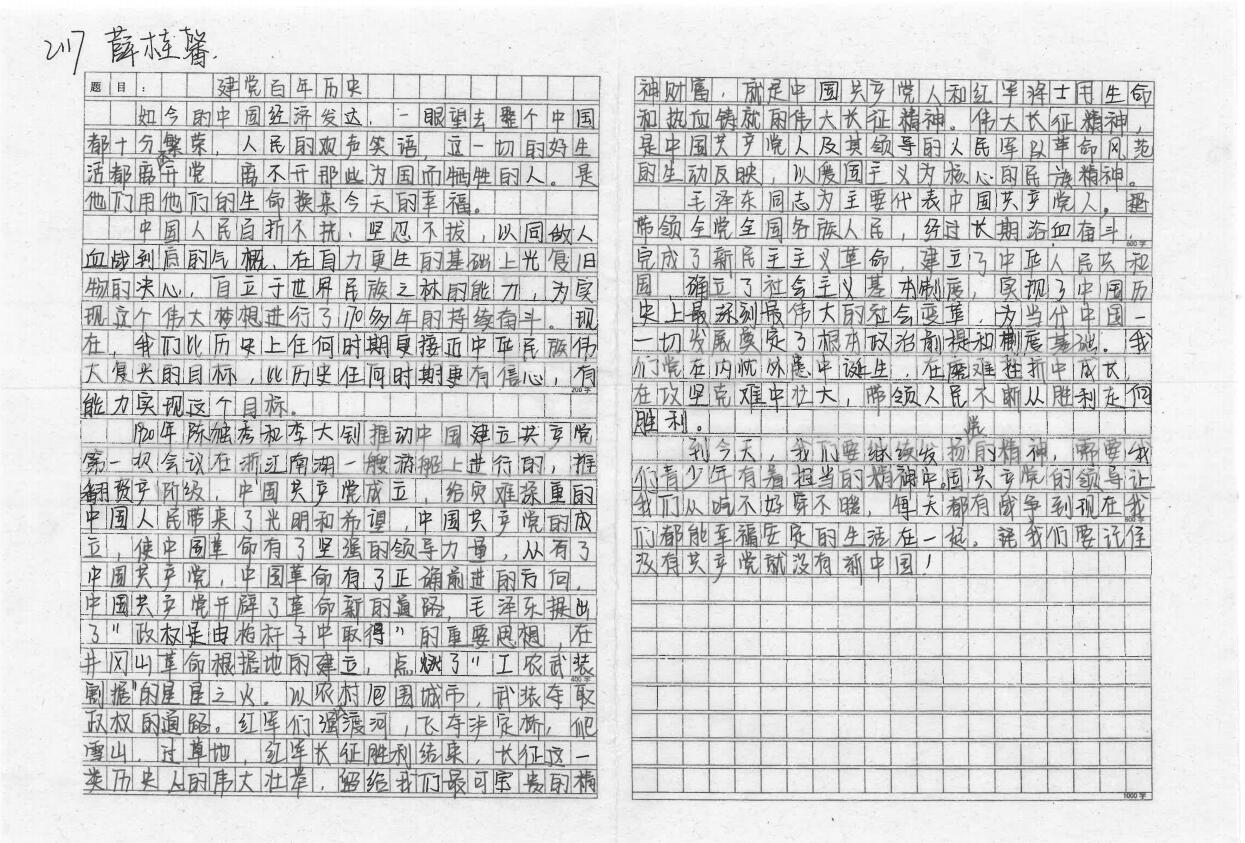 2117 薛桂馨.
题目: 建党百年历史
如今的中国经济发达,一眼望去整个中国
都十分繁荣,人民的欢声笑语,这一切的好生
活都离开党,离不开那些为国而牺牲的人。是
他们用他们的生命换来今天的幸福。
中国人民百折不挠,坚忍不拔,以同敌人
血战到底的气概,在自力更生的基础上光复旧
物的决心,自立于世界民族之林的能力,为实
现这个伟大梦想进行了170多年的持续奋斗。现
在,我们比历史上任何时期更接近中华民族伟
大复兴的目标,比历史任何时期更有信心,有
200字
能力实现这个目标。
1920年陈独秀和李大钊推动中国建立共产党
第一次会议在浙江南湖一艘游船上进行的,推
翻资产阶级,中国共产党成立,给灾难深重的
中国人民带来了光明和希望,中国共产党的成
立,使中国革命有了坚强的领导力量,从有了
中国共产党,中国革命有了正确前进的方向,
中国共产党开辟了革命新的道路,毛泽东提出
了“政权是由枪杆子中取得”的重要思想,在
井冈山革命根据地的建立,点燃了“工农武装
400字
割据”的星星之火。以农村包围城市,武装夺取
政权的道路。红军们强渡河,飞夺泸定桥,爬
雪山,过草地,红军长征胜利结束,长征这一
类历史人的伟大壮举,留给我们最可宝贵的精
神财富,就是中国共产党人和红军将士用生命
和热血铸就的伟大长征精神。伟大长征精神,
是中国共产党人及其领导的人民军队革命风范
的生动反映,以爱国主义为核心的民族精神。
毛泽东同志为主要代表中国共产党人,
带领全党全国各族人民,经过长期浴血奋斗,
600字
完成了新民主主义革命,建立了中华人民共和
国,确立了社会主义基本制度,实现了中国历
史上最深刻最伟大的社会变革,为当代中国一
一切发展奠定了根本政治前提和制度基础。我
们党在内忧外患中诞生,在磨难挫折中成长,
在攻坚克难中壮大,带领人民不断从胜利走向
胜利。
到今天,我们要继续发扬党的精神,需要我
们青少年有着担当的精神中国共产党的领导让
我们从吃不好穿不暖,每天都有战争到现在我
800字
们都能幸福安定的生活在一起。我们要记住
没有共产党就没有新中国!
1000字